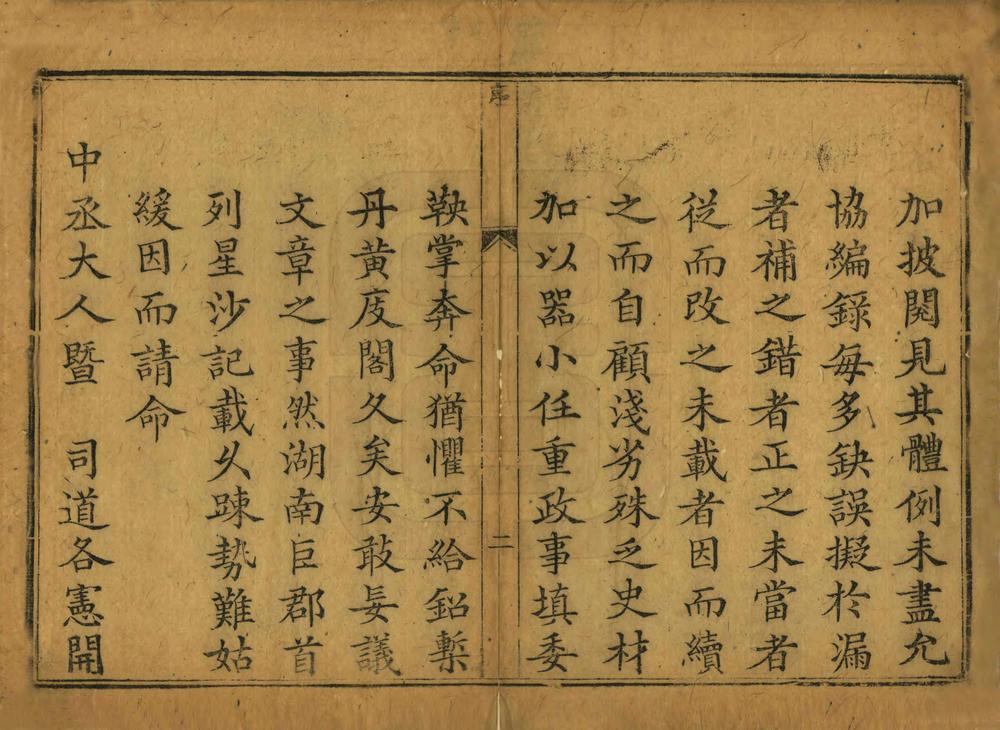 加披閱見其體例未盡允
協編錄每多缺誤擬於漏
者補之錯者正之未當者
從而改之未載者因而續
之而自顧淺劣殊乏史材
加以器小任重政事填委
序
二
鞅掌奔命猶懼不給鉛槧
丹黃庋閣久矣安敢妄議
文章之事然湖南巨郡首
列星沙記載乆踈勢難姑
緩因而請命
中丞大人暨　司道各憲開